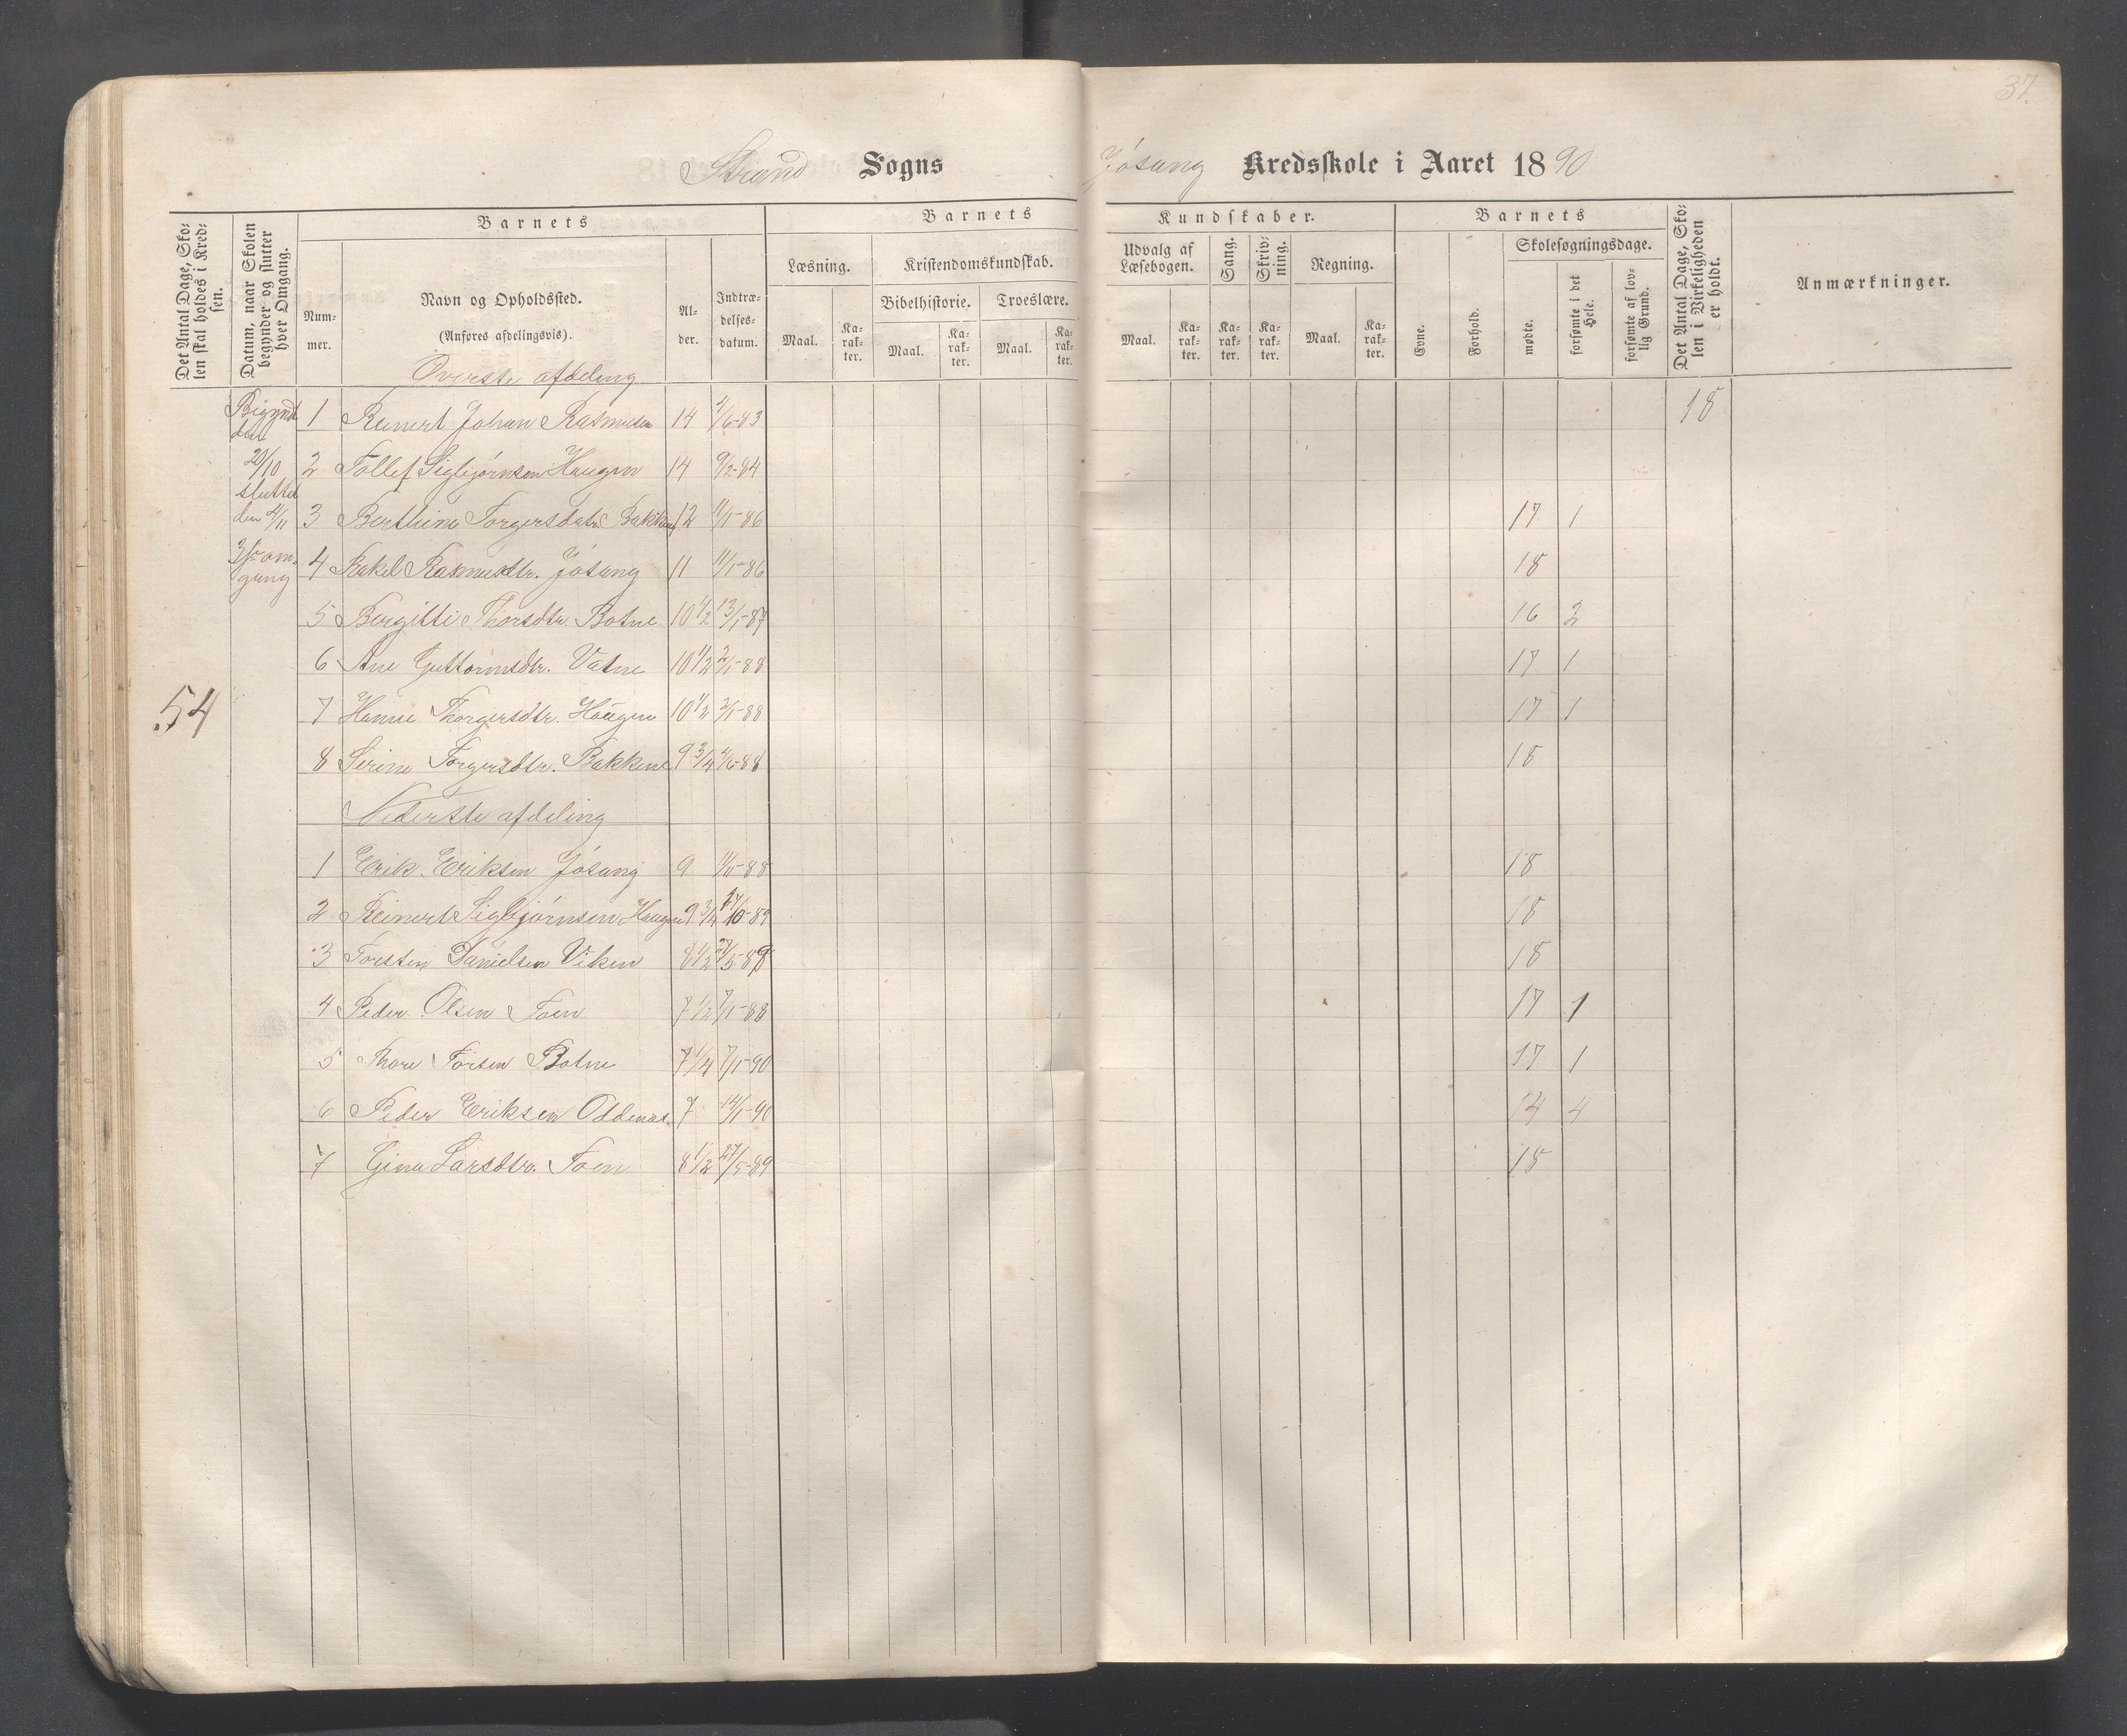 37.
Strand Sogns
Jösang Kredsskole i Aaret 1890
Det Antal Dage, Skolen skal holdes i Kredsen.
Datum, naar Skolen begynder og slutter hver Omgang.
Barnets
Nummer.
Navn og Opholdssted.
(Anføres afdelingsvis).
Alder.
Indtrædelsesdatum.
Barnets
Læsning.
Kristendomskundskab.
Bibelhistorie.
Troeslære.
Maal.
Karakter.
Maal.
Karakter.
Maal.
Karakter.
Kundskaber.
Udvalg af Læsebogen.
Sang.
Skrivning.
Regning.
Maal.
Karakter.
Karakter.
Karakter.
Maal.
Karakter.
Barnets
Evne.
Forhold.
Skolesøgningsdage.
mødte.
forsømte i det Hele.
forsømte af lovlig Grund.
Det Antal Dage, Skolen i Virkeligheden er holdt.
Anmærkninger.
Överste afdeling
Begyndt den 20/10 sluttet den 4/11
omgang
54
1 Reinert Johan Rasmusen 14 4/6-83 18
2 Tollef Sigbjörnsen Haugen 14 9/2-84
3 Berthina Torgersdatr. Bakken 12 11/1-86 17 1
4 Rakel Rasmusdtr. Jösang 11 11/1-86 18
5 Bergitte Thorsdtr. Botne 10 1/2 13/1-87 16 2
6 Ane Guttormsdtr. Vatne 10 1/2 2/1-88 17 1
7 Hanne Thorgersdtr. Haugen 10 1/2 2/1-88 17 1
8 Serine Torgersdtr. Bakkene 9 3/4 4/6-88 18
Nederste afdeling
1 Erik Eriksen Jösang 9 11/11-88 18
2 Reinert Sigbjörnsen Haugen 9 3/4 /10-89 18
3 Torsten Danielsen Viken 8 1/2 18
4 Peder Olsen Toen 7 1/2 7/1-88 17 1
5 Thore Torsen Botne 7 1/4 7/1-90 17 1
6 Peder Eriksen Oddenas. 7 14/1-90 14 4
7 Gina Larsdtr. Toen 8 1/2 27/5-89 18